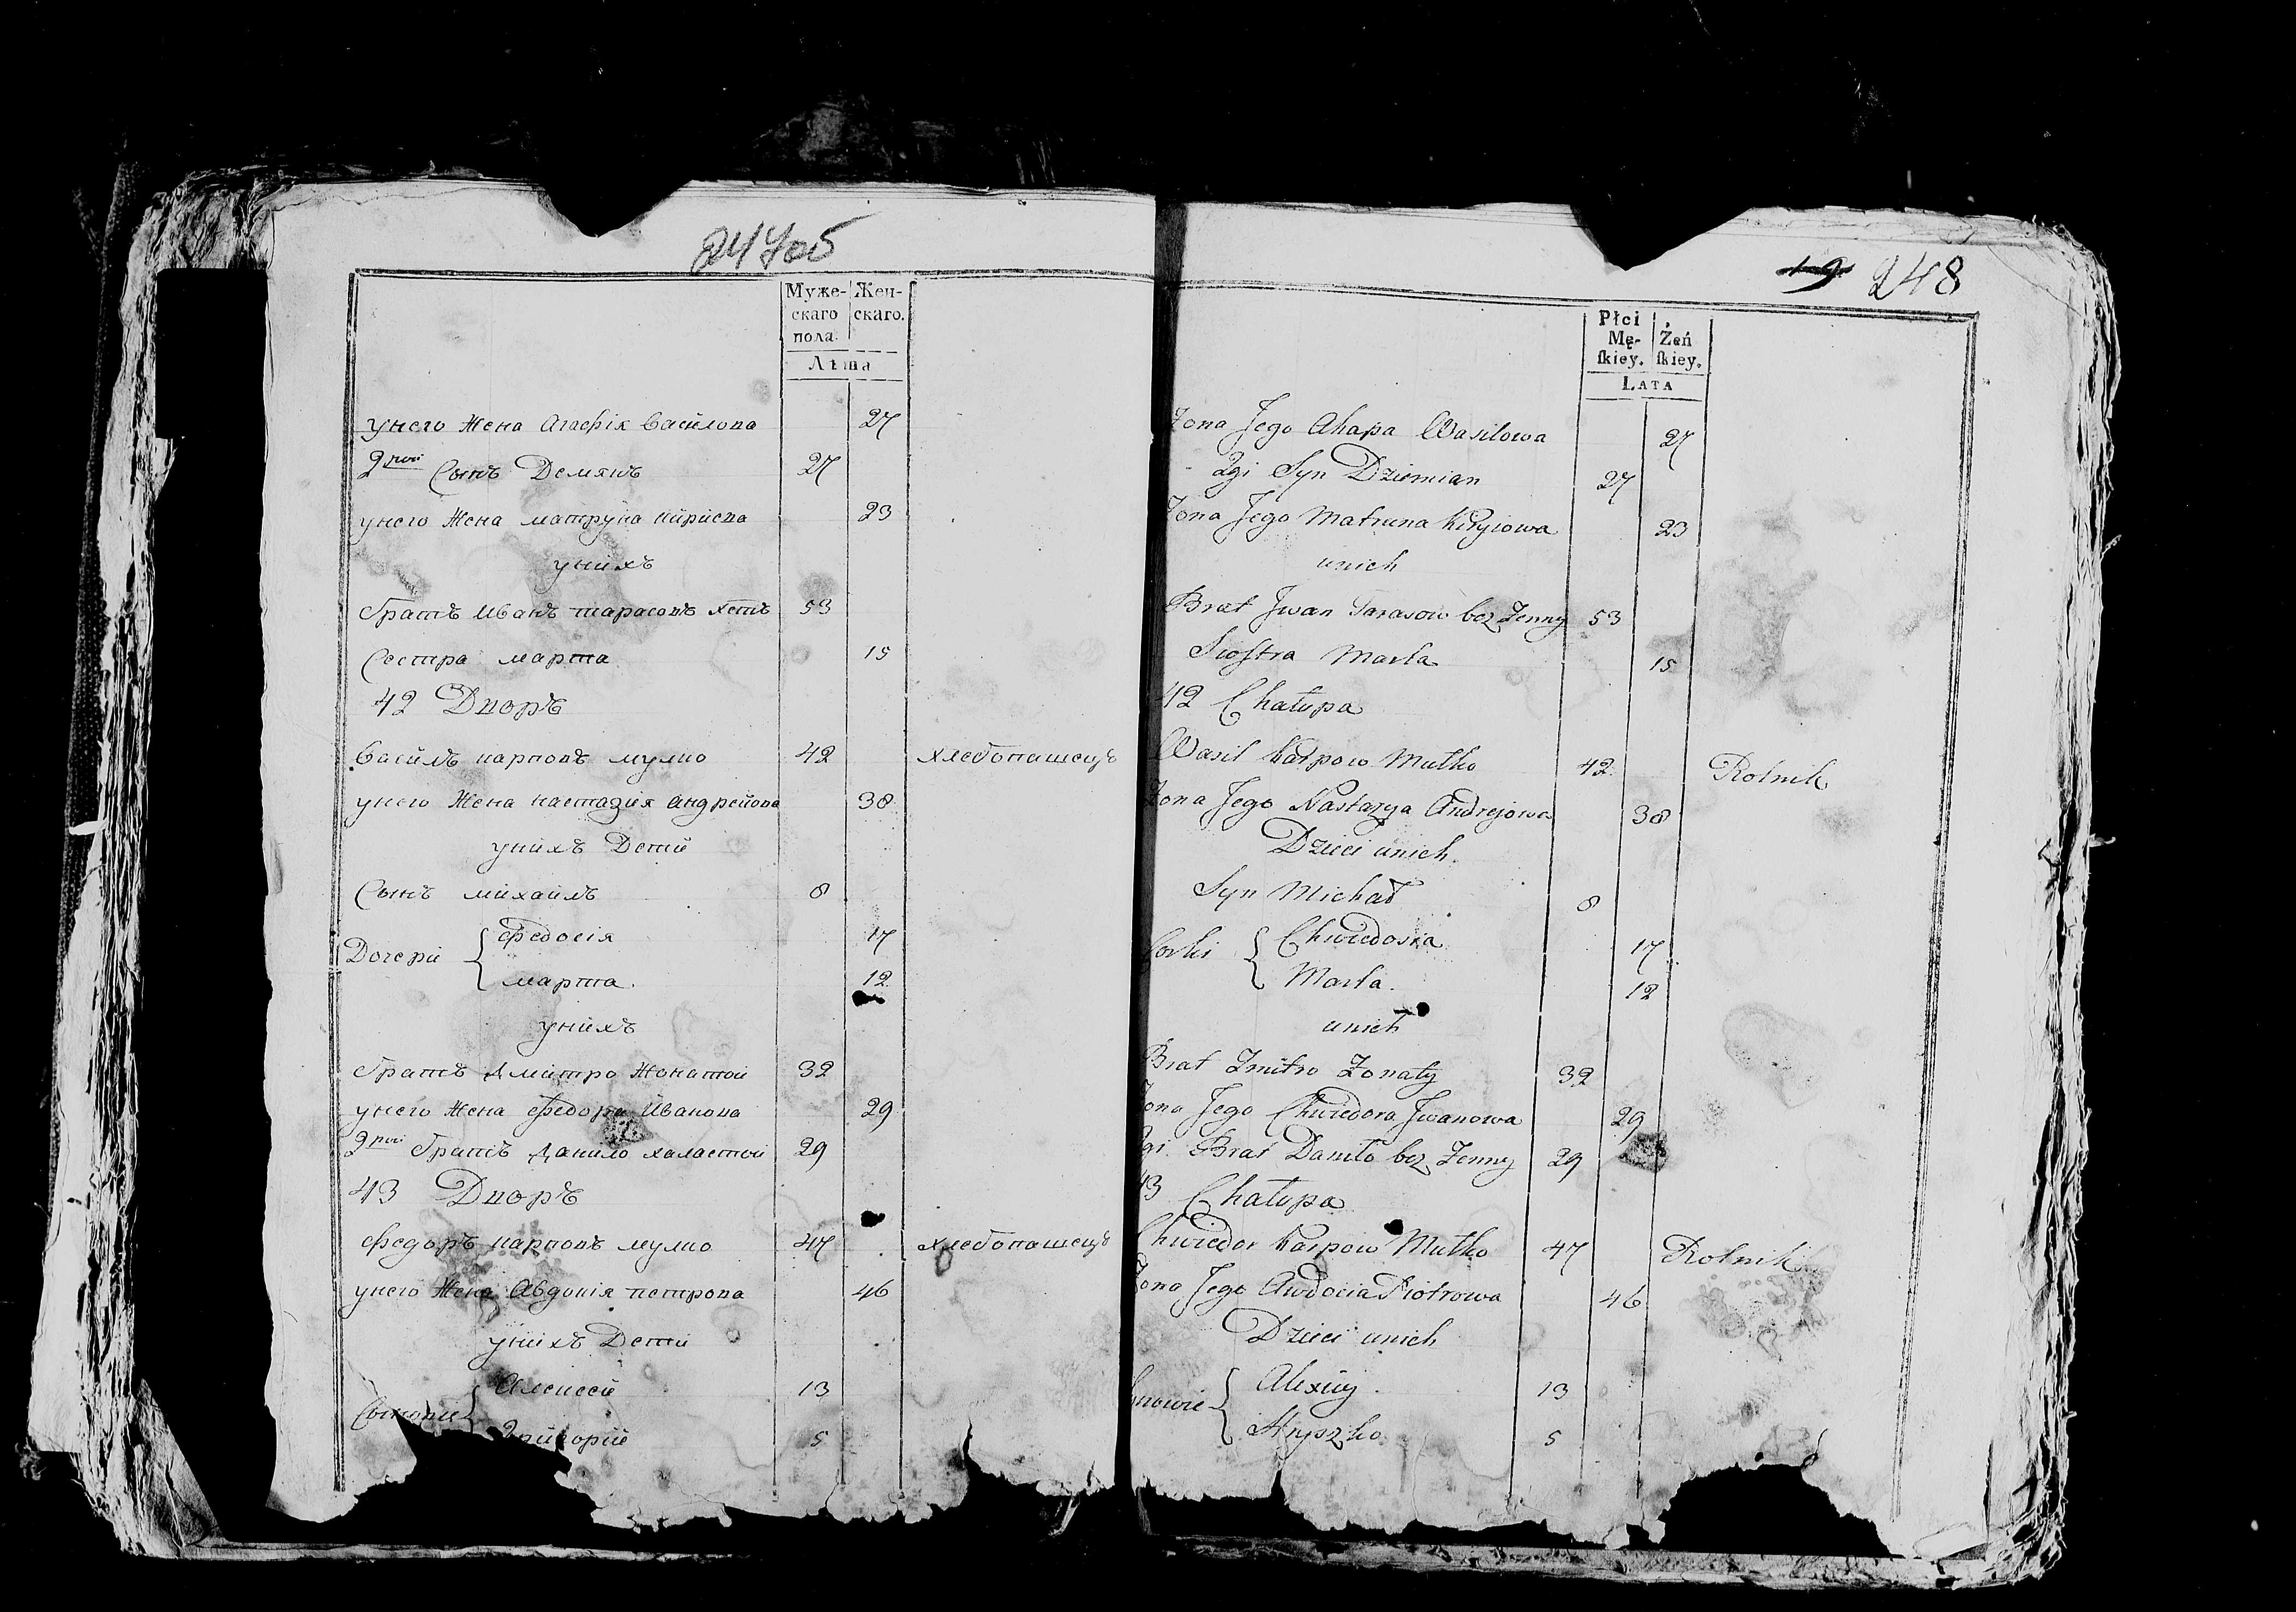 247об
Муже-
скаго
пола.
Жен-
скаго.
Лѣта
унего Жена Агафія Василова 27
2рой Сынъ Демянъ 27
унего Жена матруна кирисва 23
унихъ
братъ Иванъ тарасовъ 53
Сестра марта 15
42 Дворъ
Василъ карповъ мулко 42 хлебопашецъ
унего Жена настазія андрейова 38
унихъ Дети
Сынъ михаилъ 8
Дочери
федосія 17
марта. 12
унихъ
братъ дмитро Жонатой 32
унего Жена федора Иванова 29
2рой братъ данило халастой 29
43 Дворъ
федоръ карповъ мулко 47 хлебопашецъ
унего Жена Авдокія петрова 46
унихъ Дети
Сынови
Алексей 13
Григорій 5
19 248
Płci
Mę-
ſkiey.
Żeń
ſkiey.
LATA
Żona Jego Ahapa Wasilowa 27
2gi Syn Dziemian 27
Żona Jego Matruna Kiryiowa 23
unich
Brat Jwan Tarasow bez Żenny 53
Siostra Marta 15
42 Chałupa
Wasil Karpow Mutko 42 Rolnik
Żona Jego Nastazya Andrejowa 38
Dzieci unich
Syn Michał 8
Corki
Chwiedosia 17
Marta. 12
unich
Brat Zmitro Żonaty 32
Żona Jego Chwiedora Jwanowa 29
2gi Brat Daniło bez Żenny 29
43 Chałupa
Chwiedor Karpow Mutko 47 Rolnik
Żona Jego Awdocia Piotrowa 46
Dzieci unich
Synowie
Alexiey 13
Hryszko 5